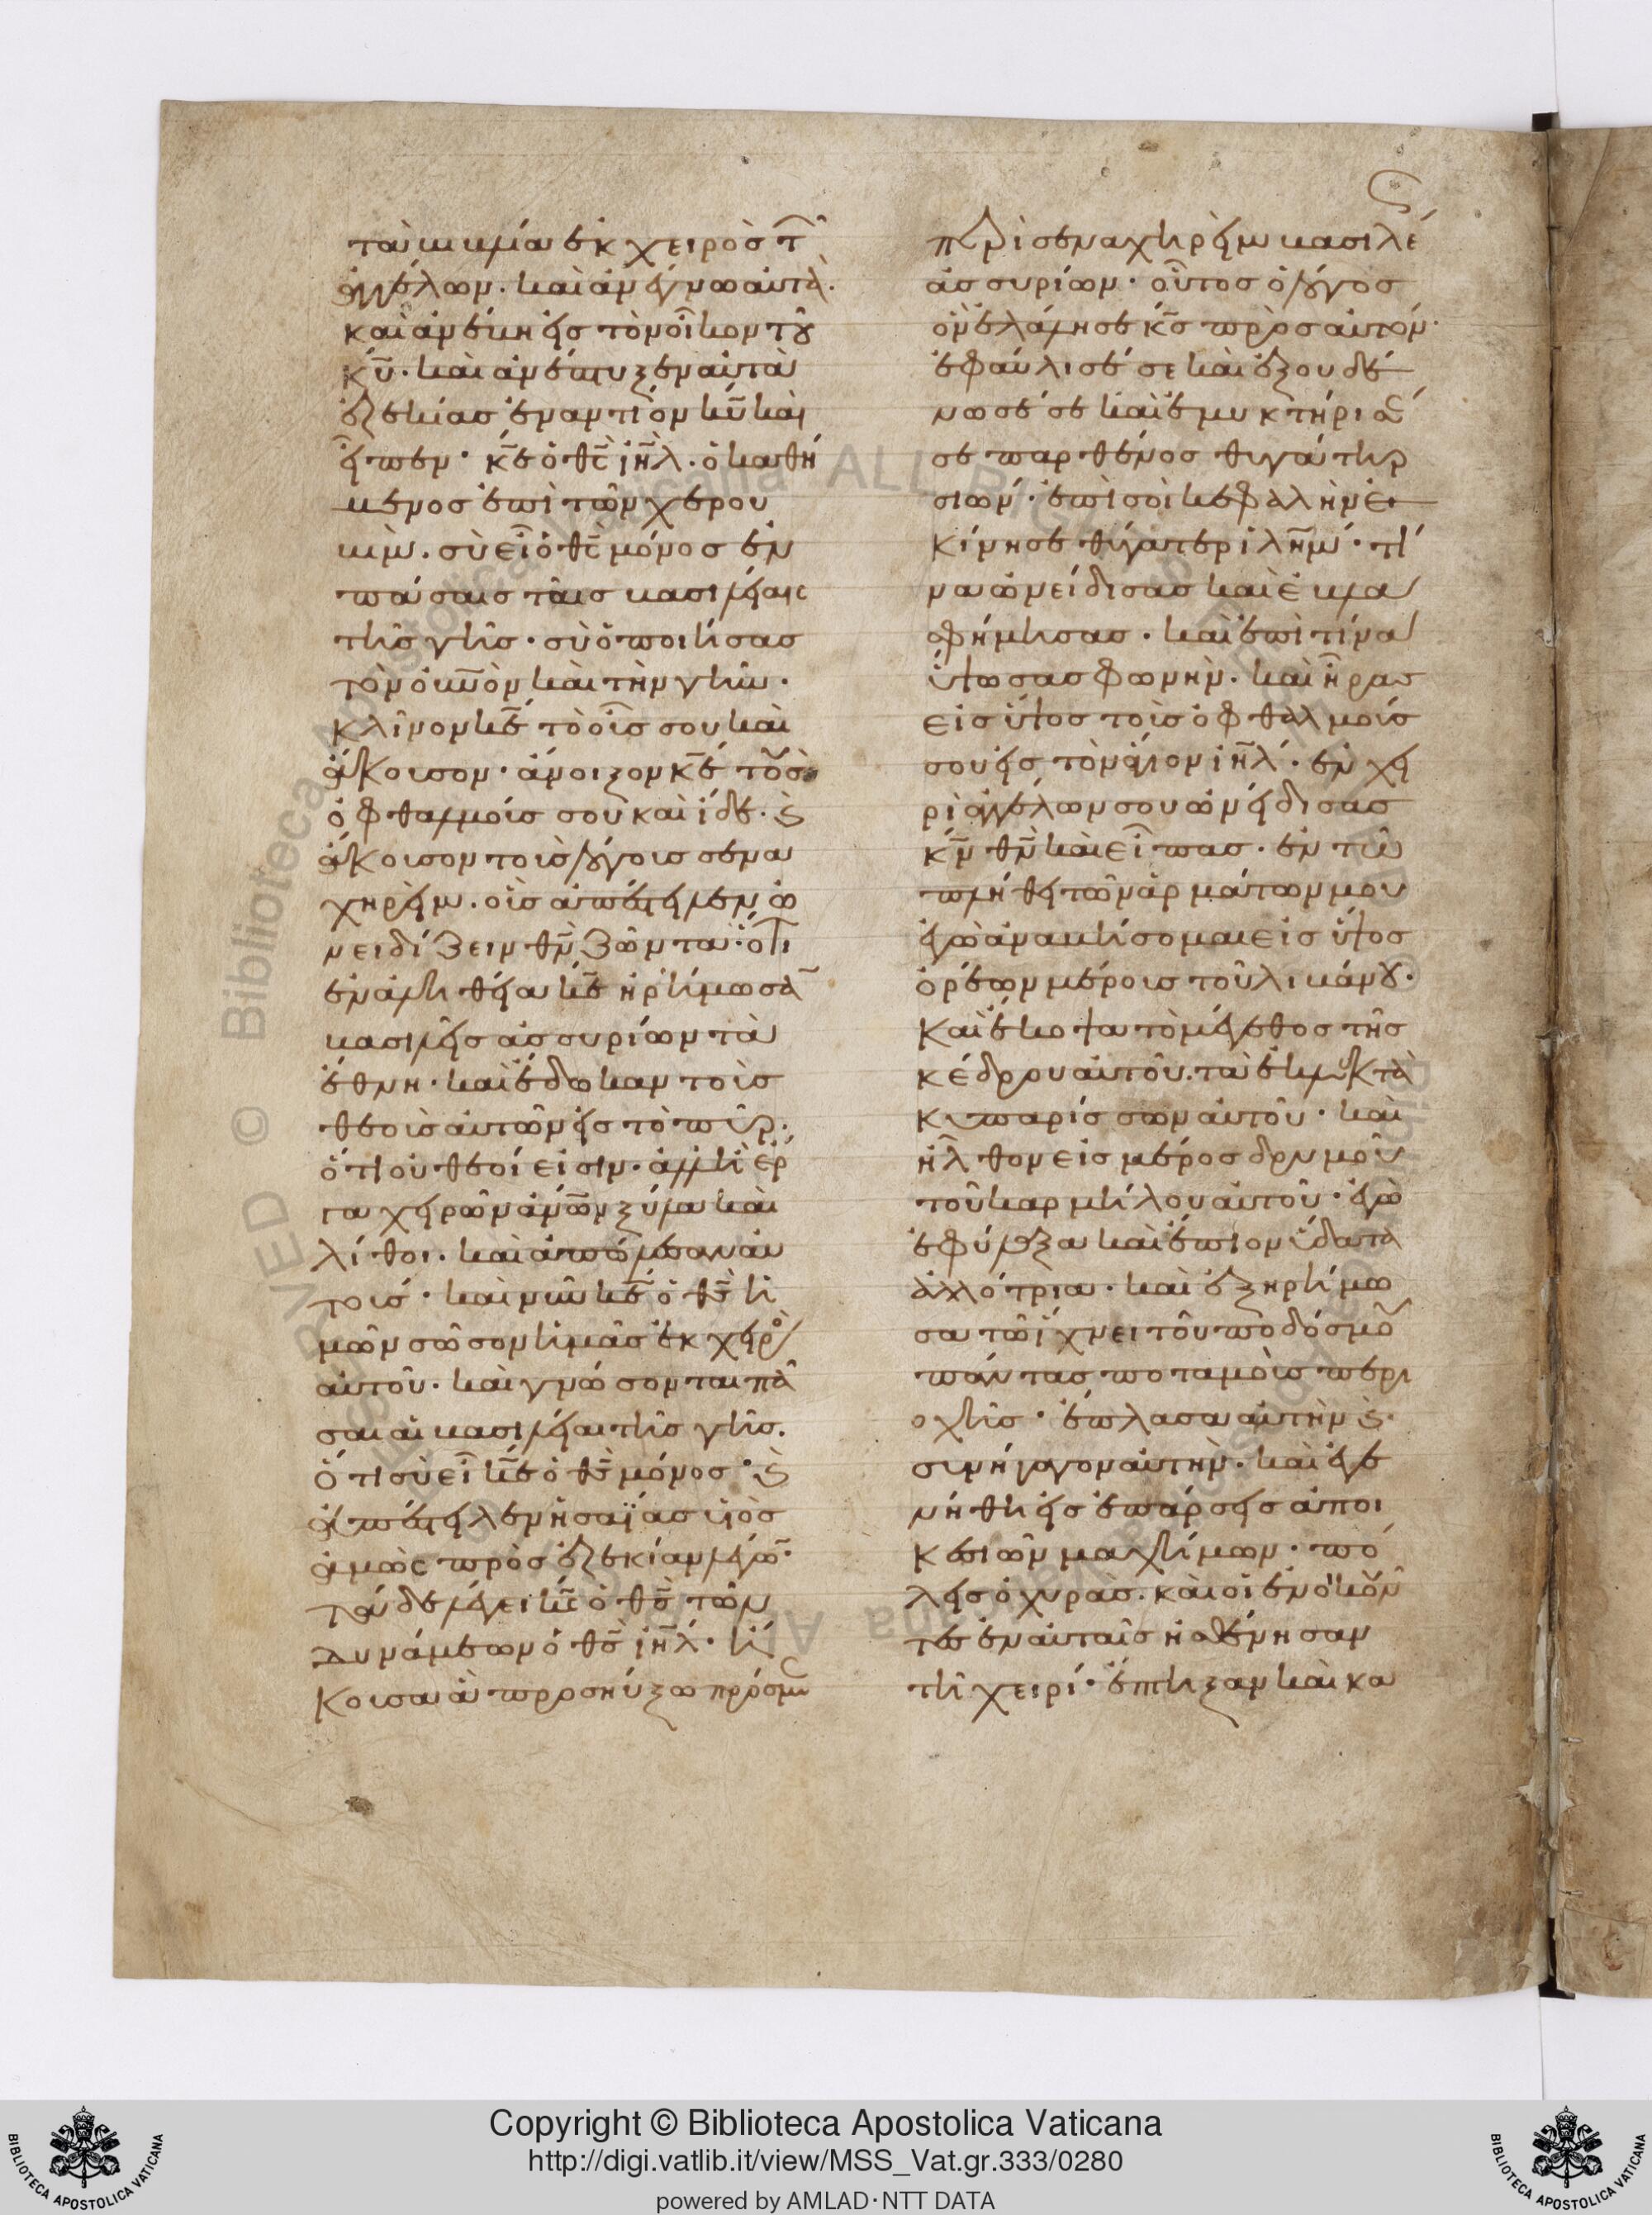 τὰ βιβλία ἐκ χειρὸς τ
ἀγγέλων· καὶ ἀνέγνω αὐτὰ·
καὶ ἀνέβη εἰς τὸν οἶκον τοῦ
κ̅υ̅· καὶ ἀνέπτυξεν αὐτὰ
ἐζεκίας ἐναντίον κ̅υ̅ καὶ
εἶπεν· κ̅ε̅ ὁ θ̅ς̅ ι̅η̅λ̅· ὁ καθή
μενος ἐπὶ τῶν χερου
βὶμ· σὺ εἶ ὁ θ̅ς̅ μόνος ἐν
πάσαις ταῖς βασιλείαις
τῆς γῆς· σὺ ὁ ποιήσας
τὸν ὀυ̅ν̅ὸν καὶ τὴν γῆν·
κλῖνον κ̅ε̅ τὸ οὖς σου καὶ
ἄκουσον· ἄνοιξον κ̅ε̅ τοὺσ
ὀφθαλμούς σου καὶ ἴδε· ϗ
ἄκουσον τοὺς λόγους σενα
χηρείμ· οὓς ἀπέστειλεν ὀ
νειδίζειν θ̅ν̅ ζῶντα· ὅτι
ἐν ἀληθεία κ̅ε̅ ἠρήμωσα̅
βασιλεῖς ἀσσυρίων τὰ
ἔθνη· καὶ ἔδωκαν τοὺς
θεοὺς αὐτῶν εἰς τὸ πῦρ·
ὅτι οὐ θεοί εἰσιν· ἀλλ' ἢ ἔρ
γα χειρῶν ἀν̅ω̅ν ξύλα καὶ
λίθοι· καὶ ἀπώλεσαν αὐ
τούς· καὶ νῦν κ̅ε̅ ὁ θ̅ς̅ ἡ
μῶν σῶσον ἡμᾶς ἐκ χειρὸ
αὐτοῦ· καὶ γνώσονται πᾶ
σαι αἱ βασιλείαι τῆς γῆς·
ὅτι σὺ εἶ κ̅ε̅ ὁ θ̅ς̅ μόνος· ϗ
ἀπέστειλεν ἡσαΐας υἱὸς
ἀμὼς πρὸς ἐζεκίαν λέγω̅·
τάδε λέγει κ̅ς̅ ὁ θ̅ς̅ τῶν
δυνάμεων ὁ θ̅ς̅ ι̅η̅λ̅· ἤ
κουσα ἃ προσηύξω πρός με
περὶ σεναχηρεὶμ βασιλέ
ἀσσυρίων· οὗτος ὁ λόγος
ὃν ἐλάλησε κ̅ς̅ πρὸς αὐτόν·
ἐφαύλισέ σε καὶ ἐξουδέ
νωσέ σε καὶ ἐμυκτήρισέ
σε παρθένος θυγάτηρ
σιών· ἐπὶ σοὶ κεφαλὴν ἐ
κίνησε θυγάτερ ι̅λ̅η̅μ̅· τί
να ὠνείδισας καὶ ἐβλα
σφήμησας· καὶ ἐπὶ τίνα
ὕψωσας φωνὴν· καὶ ἦρας
εἰς ὕψος τοὺς ὀφθαλμούς
σου εἰς τὸν ἅγιον ι̅η̅λ̅· ἐν χει
ρὶ ἀγγέλων σου ὠνείδισας
κ̅ν̅ θ̅ν̅ καὶ εἶπας· ἐν τῶ
πλήθει τῶν ἁρμάτων μου
ἐγὼ ἀναβήσομαι εἰς ὕψος
ὀρέων μέρους τοῦ λιβάνου·
καὶ ἔκοψα τὸ μέγεθος τῆς
κέδρου αὐτοῦ· τὰ ἐκλεκτὰ
κυπαρίσσων αὐτοῦ· καὶ
ἦλθον εἰς μέρος δρυμοῦ
τοῦ καρμήλου αὐτοῦ· ἐγὼ
ἐφύλαξα καὶ ἔπιον ὕδατα
ἀλλότρια· καὶ ἐξηρήμω
σα τῶ ἴχνει τοῦ ποδός μου
πάντας ποταμοὺς περι
οχῆς· ἔπλασα αὐτὴν ϗ
συνήγαγον αὐτὴν· καὶ ἐγε
νήθη εἰς ἐπάρσεις ἀποι
κεσιῶν μαχίμων· πό
λεις ὀχυράς· καὶ οἱ ἐνοικοῦν
τες ἐν αὐταῖς ἠσθένησαν
τῆ χειρί· ἔπτηξαν καὶ κα
Copyright © Biblioteca Apostolica Vaticana
http://digi.vatlib.it/view/MSS_Vat.gr.333/0280
powered by AMLAD·NTT DATA
BIBLIOTECA APOSTOLICA VATICANA
BIBLIOTECA APOSTOLICA VATICANA